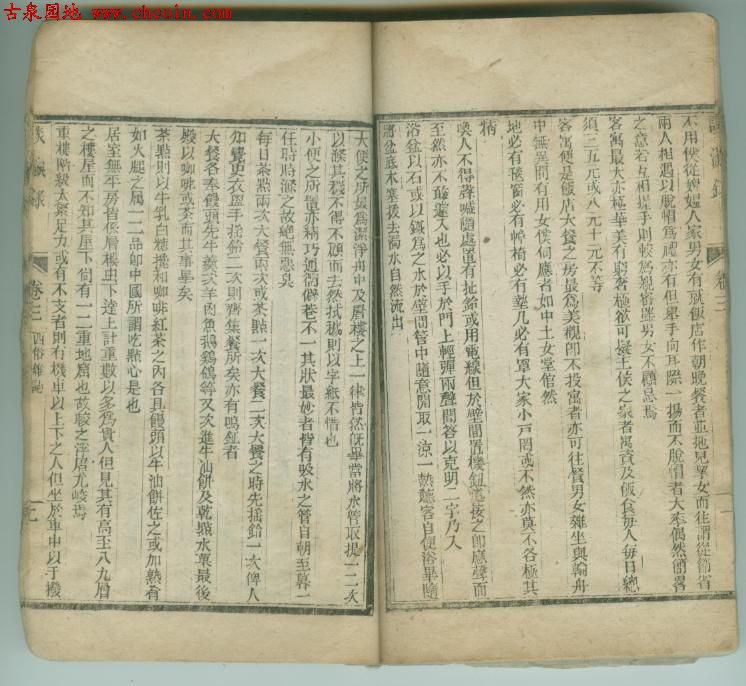 古泉园地 www.chcoin.com
不用僕從嫂嫗人家男女有就飯店作朝晚餐者並拖兒挈女而往謂從節省
兩人相遇以脫帽爲禮亦有但舉手向耳際一揚而不脫帽者大率偶然簡畧
之意若互相握手則較爲親密雖男女不顧忌焉
客寓最大亦極華美有窮奢極欲可擬王侯之家者寓資及飯食每人每日總
須三五元或八元十元不等
客寓便是飯店大餐之房最爲美觀卽不投寓者亦可往餐男女雜坐與輪舟
中無異間有用女僕伺應者如中土女堂倌然
地必有毯窗必有幃椅必有墊几必有罩大家小戸罔或不然亦莫不各極其
精
喚人不得聲喊隨處置有扯鈴或用電線但於壁間置機鈕 接之卽應聲而
至然亦不驀遽入也必以手於門上輕彈兩聲聞答以克明二字乃入
浴盆以石或以鐵爲之水於壁間管中隨意開取一涼一熱聽客自便浴畢隨
將盆底木塞拔去濁水自然流出
卷三
大便之所最爲潔淨舟中及層樓之上一律皆然旣畢當將水管取提一二次
以滌其穢不得不顧而去然拭穢則以字紙不惜也
小便之所 亦精巧通衢僻巷不一其狀最妙者皆有吸水之管自朝至暮一
任時時滌之故絕無惡臭
每日茶點兩次大餐兩次或茶點一次大餐二次大餐之時先搖鈴一次俾人
知覺更衣盥手搖鈴二次則齊集餐所矣亦有鳴鉦者
大餐各奉饅頭先牛羹次羊肉魚鵝鷄鴿等又次進牛油餅及乾點水菓最後
殿以咖啡或茶而其事畢矣
茶點則以牛乳白糖攙和咖啡紅茶之內各具饅頭以牛油餅佐之或加熟肴
如火腿之屬一二品卽中國所謂吃點心是也
居室無平房皆係層樓由下達上計重數以多爲貴人但見其有高至八九層
之樓屋而不知其屋下尙有一二重地窟也故較之浮屠尤峻焉
重樓階級太繁足力或有不支者則有機車以上下之人但坐於車中以手撥
談瀛錄 卷三 西俗雜誌 九